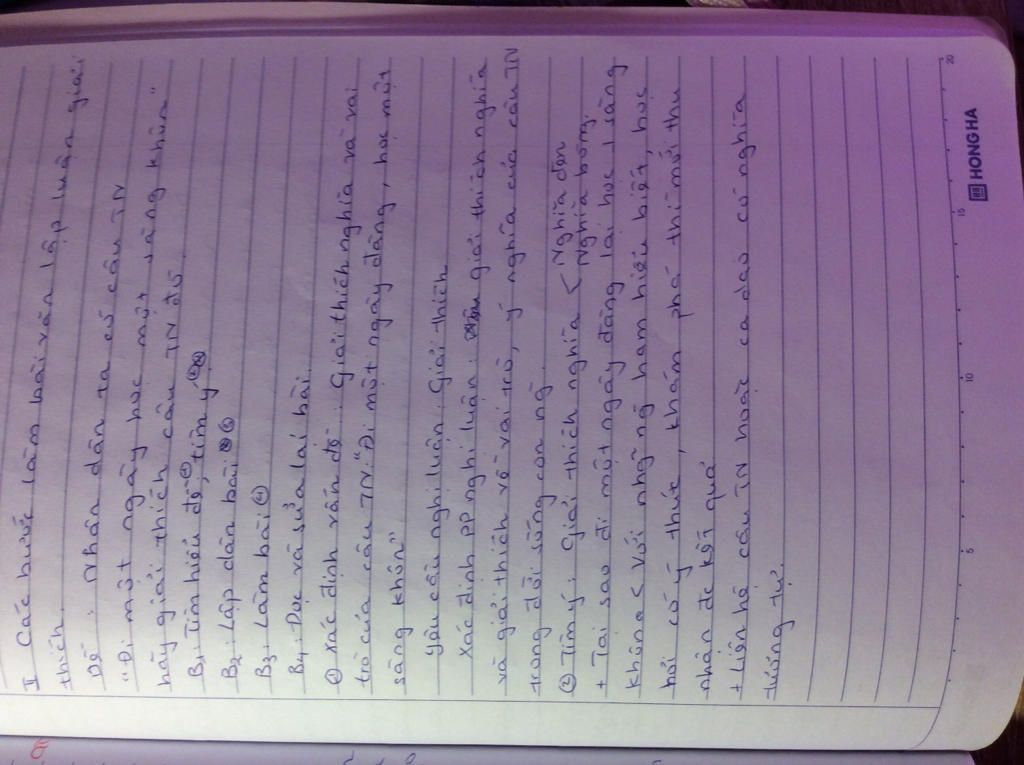 II Các bước làm bài văn lập luận giải
thích.
Đề : Nhân dân ta có câu TN
"Đi một ngày học một sàng khôn"
hãy giải thích câu TN đó.
B1: Tìm hiểu đề, ① tìm ý, ②
B2: Lập dàn bài ③
B3: Làm bài ④
B4: Đọc và sửa lại bài.
① Xác định vấn đề : Giải thích nghĩa và vai
trò của câu TN: "Đi một ngày đàng, học một
sàng khôn"
yêu cầu nghị luận: Giải thích
Xác định pp nghị luận: giải thích nghĩa
và giải thích về vai trò, ý nghĩa của câu TN
trong đời sống con ng.
② Tìm ý: Giải thích nghĩa < Nghĩa đen
Nghĩa bóng.
+ Tại sao đi một ngày đàng lại học 1 sàng
không < Với những ng ham hiểu biết, học
hỏi có ý thức, khám phá thì mới thu
nhận đc kết quả
+ Liên hệ câu TN hoặc ca dao có nghĩa
tương tự.
HONG HA
5
10
15
20